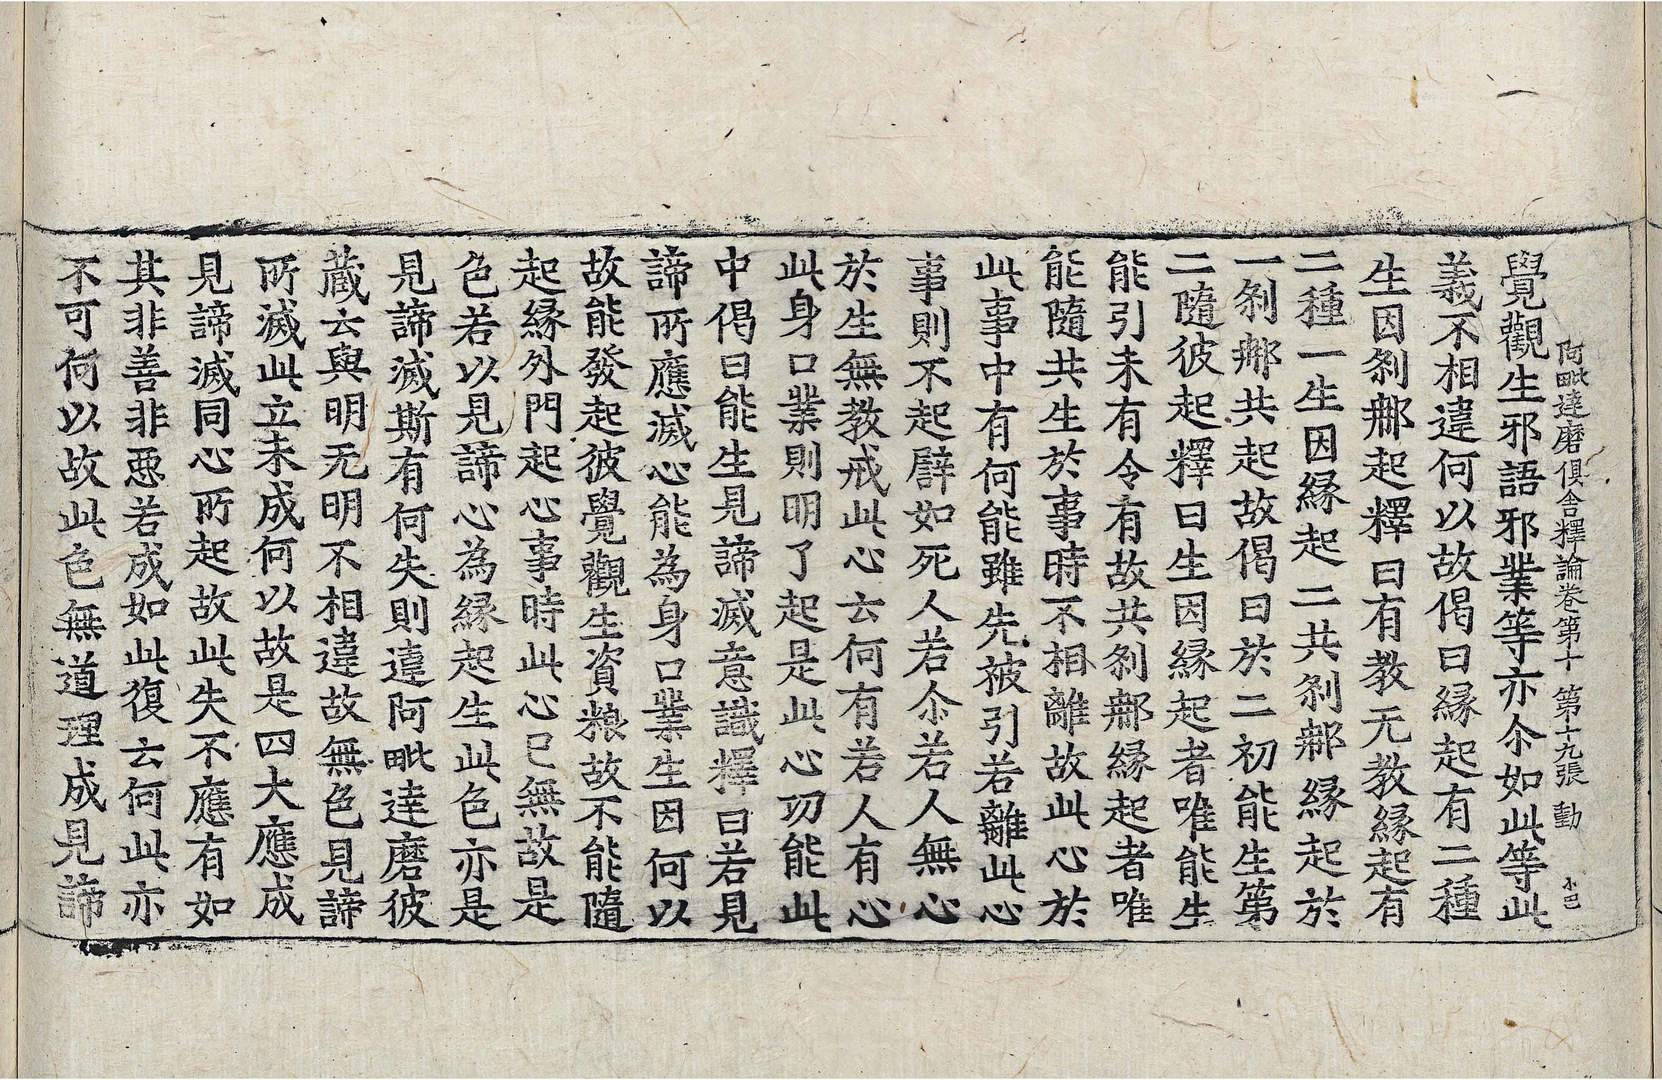 阿毗達磨俱舍釋論卷第十 第十九張 動 小巴
覺觀生邪語邪業等亦尒如此等此
義不相違何以故偈曰緣起有二種
生因剎𨙻起釋曰有教无教緣起有
二種一生因緣起二共剎𨙻緣起於
一剎𨙻共起故偈曰於二初能生第
二隨彼起釋曰生因緣起者唯能生
能引未有令有故共剎𨙻緣起者唯
能隨共生於事時不相離故此心於
此事中有何能雖先被引若離此心
事則不起譬如死人若尒若人無心
於生無教戒此心云何有若人有心
此身口業則明了起是此心功能此
中偈曰能生見諦滅意識釋曰若見
諦所應滅心能為身口業生因何以
故能發起彼覺觀生資粮故不能隨
起緣外門起心事時此心已無故是
色若以見諦心為緣起生此色亦是
見諦滅斯有何失則違阿毗達磨彼
藏云與明无明不相違故無色見諦
所滅此立未成何以故是四大應成
見諦滅同心所起故此失不應有如
其非善非惡若成如此復云何此亦
不可何以故此色無道理成見諦